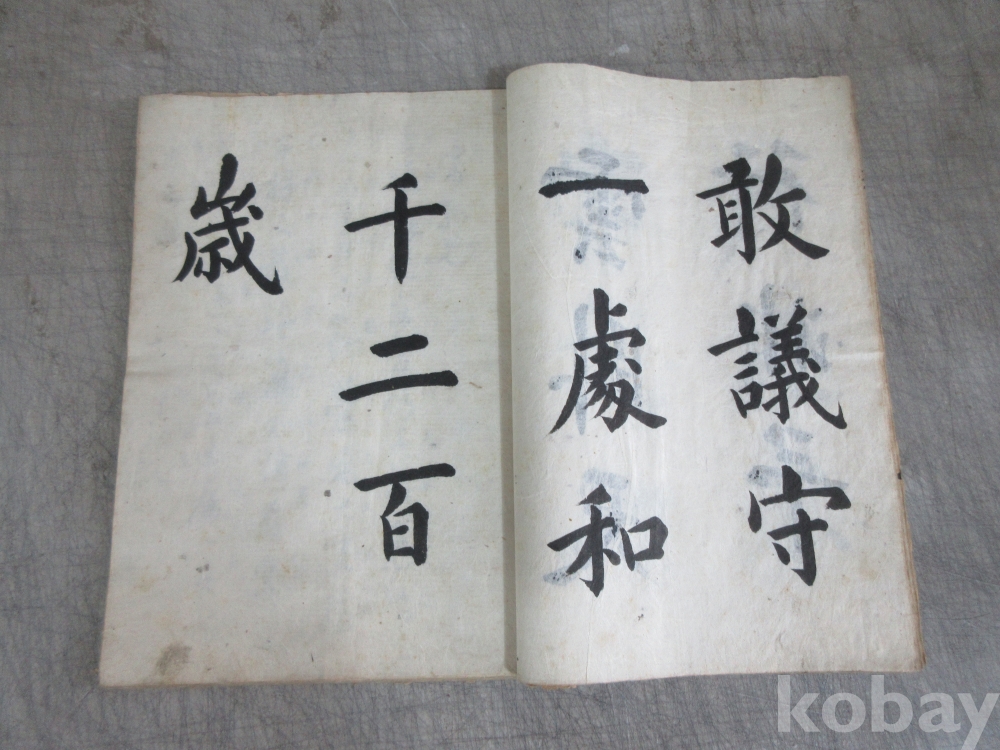 敢議守
一處和
千二百
歲
kobay